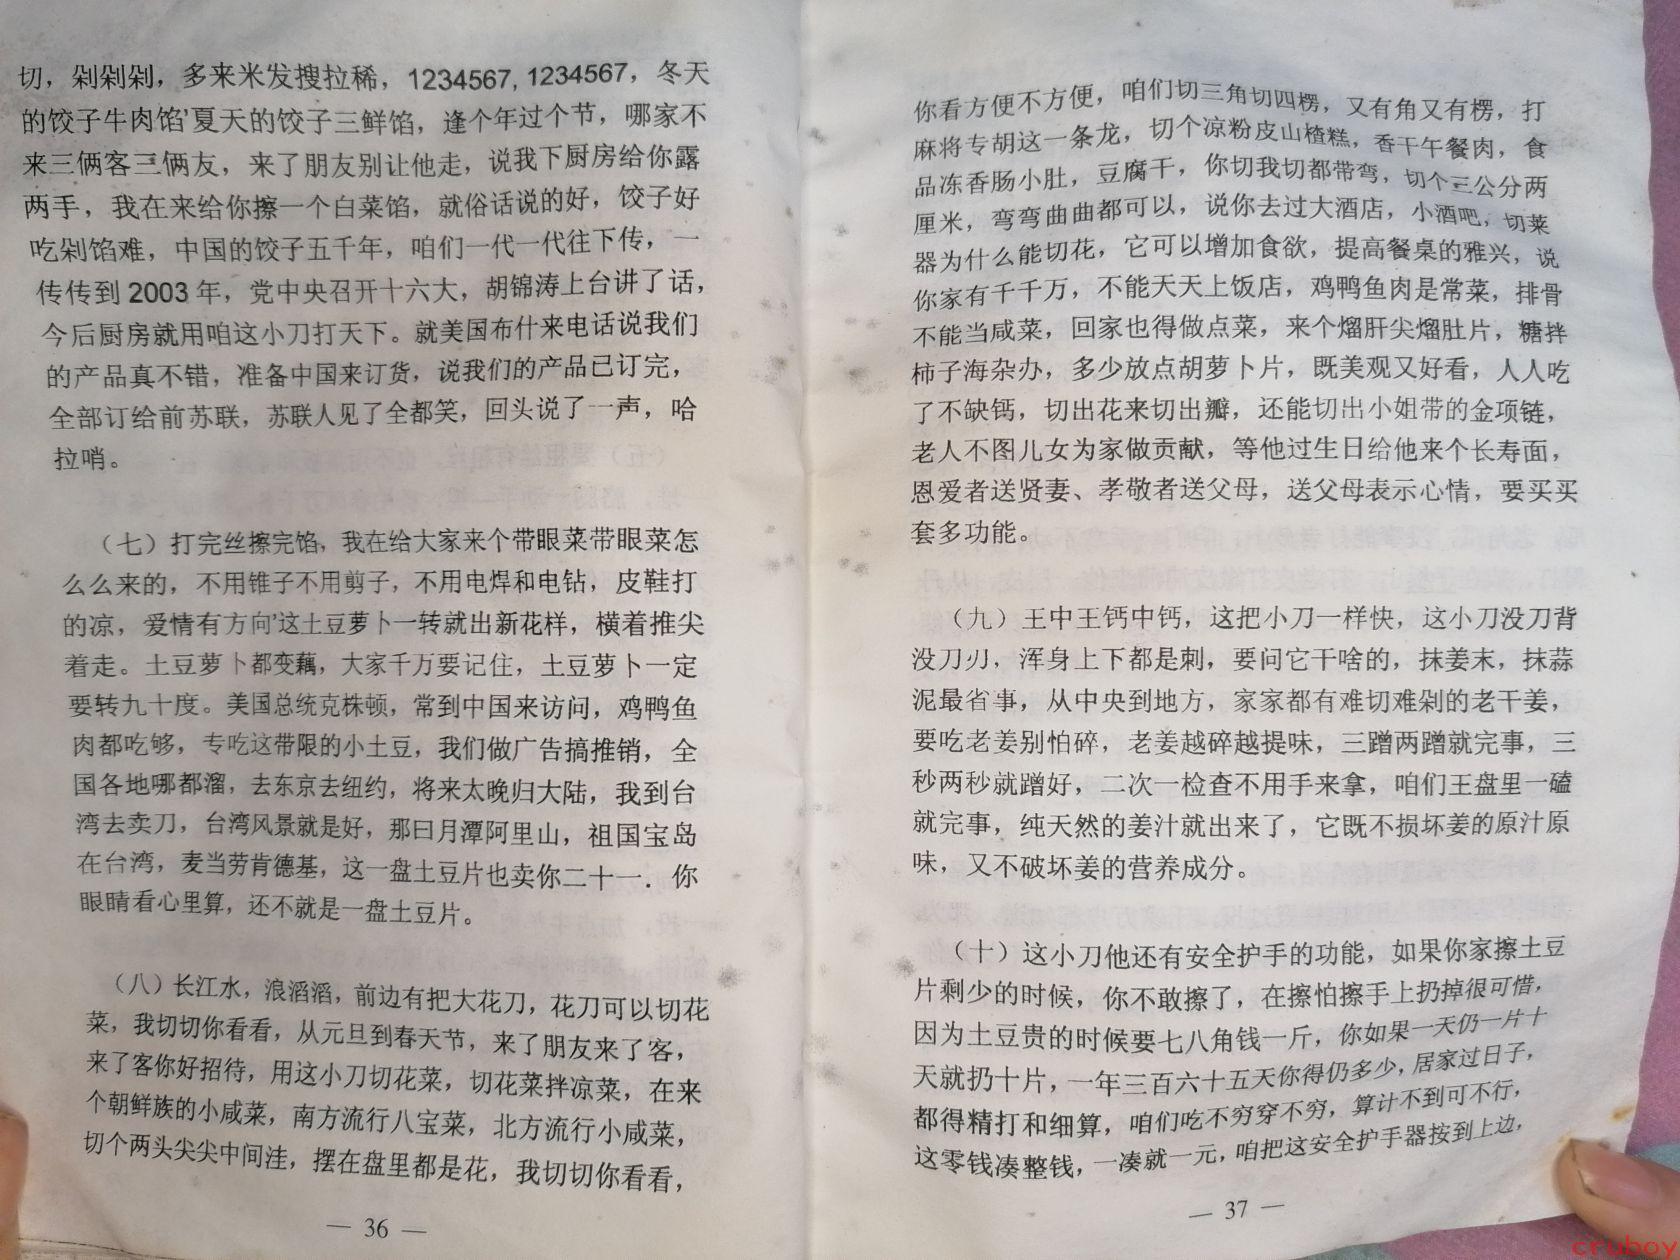 切，剁剁剁，多来米发搜拉稀，1234567, 1234567，冬天
的饺子牛肉馅'夏天的饺子三鲜馅，逢个年过个节，哪家不
来三俩客三俩友，来了朋友别让他走，说我下厨房给你露
两手，我在来给你擦一个白菜馅，就俗话说的好，饺子好
吃剁馅难，中国的饺子五千年，咱们一代一代往下传，一
传传到 2003 年，党中央召开十六大，胡锦涛上台讲了话，
今后厨房就用咱这小刀打天下。就美国布什来电话说我们
的产品真不错，准备中国来订货，说我们的产品已订完，
全部订给前苏联，苏联人见了全都笑，回头说了一声，哈
拉哨。
（七）打完丝擦完馅，我在给大家来个带眼菜带眼菜怎
么么来的，不用锥子不用剪子，不用电焊和电钻，皮鞋打
的凉，爱情有方向'这土豆萝卜一转就出新花样，横着推尖
着走。土豆萝卜都变藕，大家千万要记住，土豆萝卜一定
要转九十度。美国总统克株顿，常到中国来访问，鸡鸭鱼
肉都吃够，专吃这带限的小土豆，我们做广告搞推销，全
国各地哪都溜，去东京去纽约，将来太晚归大陆，我到台
湾去卖刀，台湾风景就是好，那日月潭阿里山，祖国宝岛
在台湾，麦当劳肯德基，这一盘土豆片也卖你二十一．你
眼睛看心里算，还不就是一盘土豆片。
（八）长江水，浪滔滔，前边有把大花刀，花刀可以切花
菜，我切切你看看，从元旦到春天节，来了朋友来了客，
来了客你好招待，用这小刀切花菜，切花菜拌凉菜，在来
个朝鲜族的小咸菜，南方流行八宝菜，北方流行小咸菜，
切个两头尖尖中间洼，摆在盘里都是花，我切切你看看，
— 36 —
你看方便不方便，咱们切三角切四楞，又有角又有楞，打
麻将专胡这一条龙，切个凉粉皮山楂糕，香干午餐肉，食
品冻香肠小肚，豆腐干，你切我切都带弯，切个三公分两
厘米，弯弯曲曲都可以，说你去过大酒店，小酒吧，切菜
器为什么能切花，它可以增加食欲，提高餐桌的雅兴，说
你家有千千万，不能天天上饭店，鸡鸭鱼肉是常菜，排骨
不能当咸菜，回家也得做点菜，来个熘肝尖熘肚片，糖拌
柿子海杂办，多少放点胡萝卜片，既美观又好看，人人吃
了不缺钙，切出花来切出瓣，还能切出小姐带的金项链，
老人不图儿女为家做贡献，等他过生日给他来个长寿面，
恩爱者送贤妻、孝敬者送父母，送父母表示心情，要买买
套多功能。
（九）王中王钙中钙，这把小刀一样快，这小刀没刀背
没刀刃，浑身上下都是刺，要问它干啥的，抹姜末，抹蒜
泥最省事，从中央到地方，家家都有难切难剁的老干姜，
要吃老姜别怕碎，老姜越碎越提味，三蹭两蹭就完事，三
秒两秒就蹭好，二次一检查不用手来拿，咱们王盘里一磕
就完事，纯天然的姜汁就出来了，它既不损坏姜的原汁原
味，又不破坏姜的营养成分。
（十）这小刀他还有安全护手的功能，如果你家擦土豆
片剩少的时候，你不敢擦了，在擦怕擦手上扔掉很可惜，
因为土豆贵的时候要七八角钱一斤，你如果一天仍一片十
天就扔十片，一年三百六十五天你得仍多少，居家过日子，
都得精打和细算，咱们吃不穷穿不穷，算计不到可不行，
这零钱凑整钱，一凑就一元，咱把这安全护手器按到上边，
— 37 —
cruboy